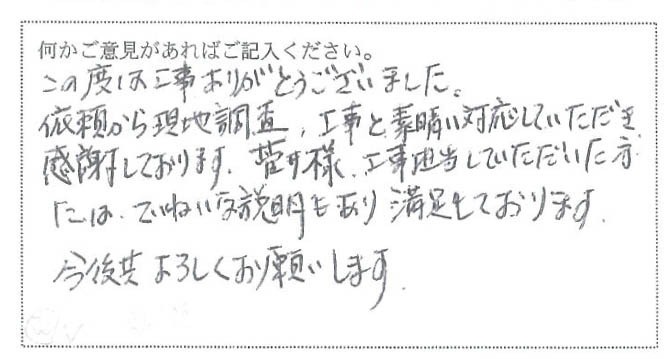 何かご意見があればご記入ください。
この度は工事ありがとうございました。
依頼から現地調査、工事と素晴い対応していただき
感謝しております。菅井様、工事担当していただいた方
には、ていねいな説明もあり満足しております。
今後共よろしくお願いします。